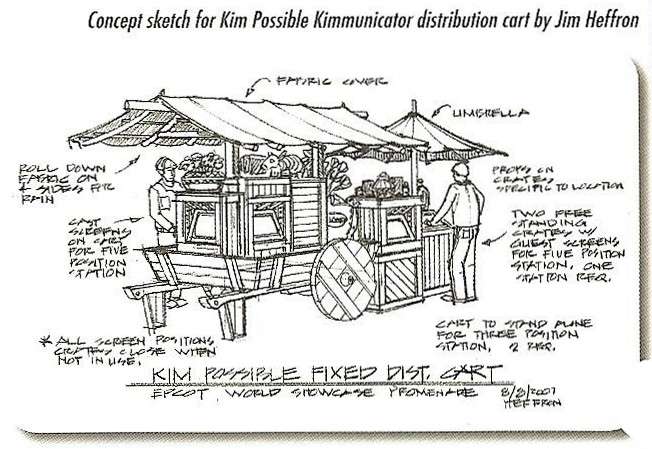 Concept sketch for Kim Possible Kimmunicator distribution cart by Jim Heffron
FABRIC COVER
UMBRELLA
ROLL DOWN
FABRIC ON
4 SIDES FOR
RAIN
PROPS ON
CRATES
SPECIFIC TO LOCATION
CAST
SCREENS
ON CART
FOR FIVE
POSITION
STATION
TWO FREE
STANDING
CRATES W/
GUEST SCREENS
FOR FIVE POSITION
STATION, ONE
STATION REQ.
* ALL SCREEN POSITIONS
CRATES CLOSE WHEN
NOT IN USE.
CART TO STAND ALONE
FOR THREE POSITION
STATION, 2 REQ.
KIM POSSIBLE FIXED DIST. CART
EPCOT WORLD SHOWCASE PROMENADE
8/8/2007
HEFFRON